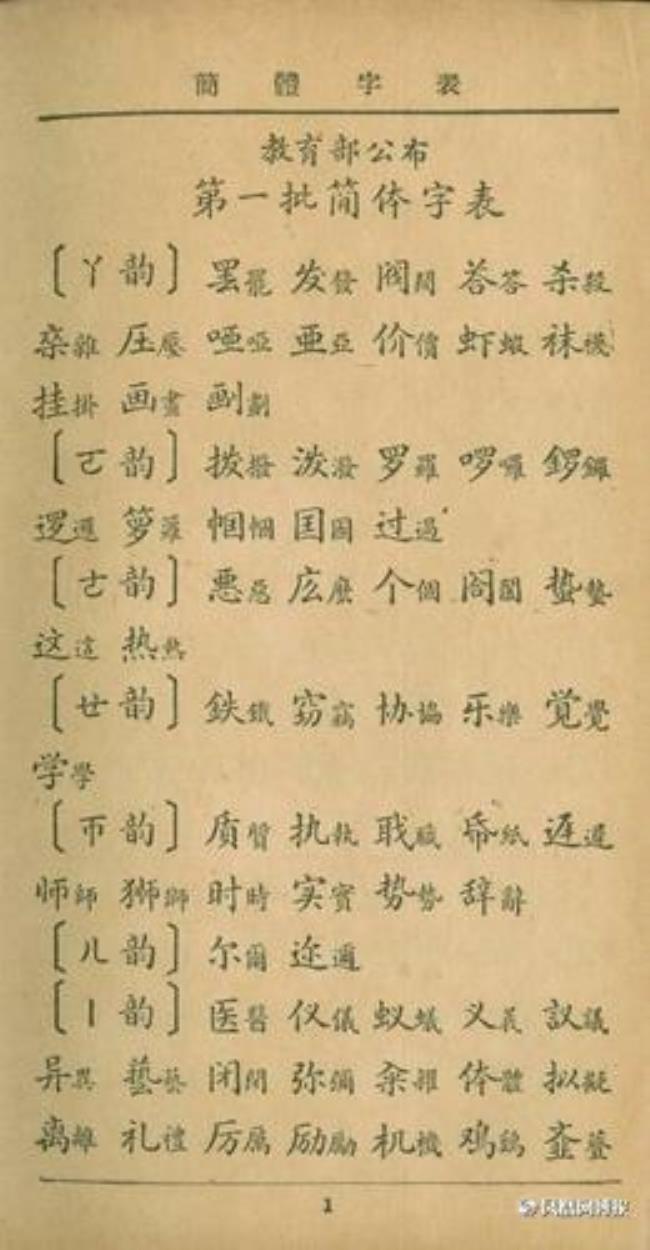 簡體字表
教育部公布
第一批简体字表
〔ㄚ韵〕 罢罷 发發 阀閥 荅答 杀殺
杂雜 压壓 哑啞 亚亞 价價 虾蝦 袜襪
挂掛 画畫 劃
〔ㄛ韵〕 拨撥 泼潑 罗羅 啰囉 鑼
逻邏 箩籮 帼幗 国國 过過
〔ㄜ韵〕 恶惡 庅麼 个個 阁閣 蛰蟄
这這 热熱
〔ㄝ韵〕 鉄鐵 窃竊 协協 乐樂 覚覺
学學
〔ㄭ韵〕 质質 执執 职職 帋紙 迟遲
师師 狮獅 时時 实實 势勢 辞辭
〔ㄦ韵〕 尔爾 迩邇
〔ㄧ韵〕 医醫 仪儀 蚁蟻 义義 議
异異 藝 闭閉 弥彌 体體 拟擬
离離 礼禮 厉厲 励勵 机機 鸡鷄
1